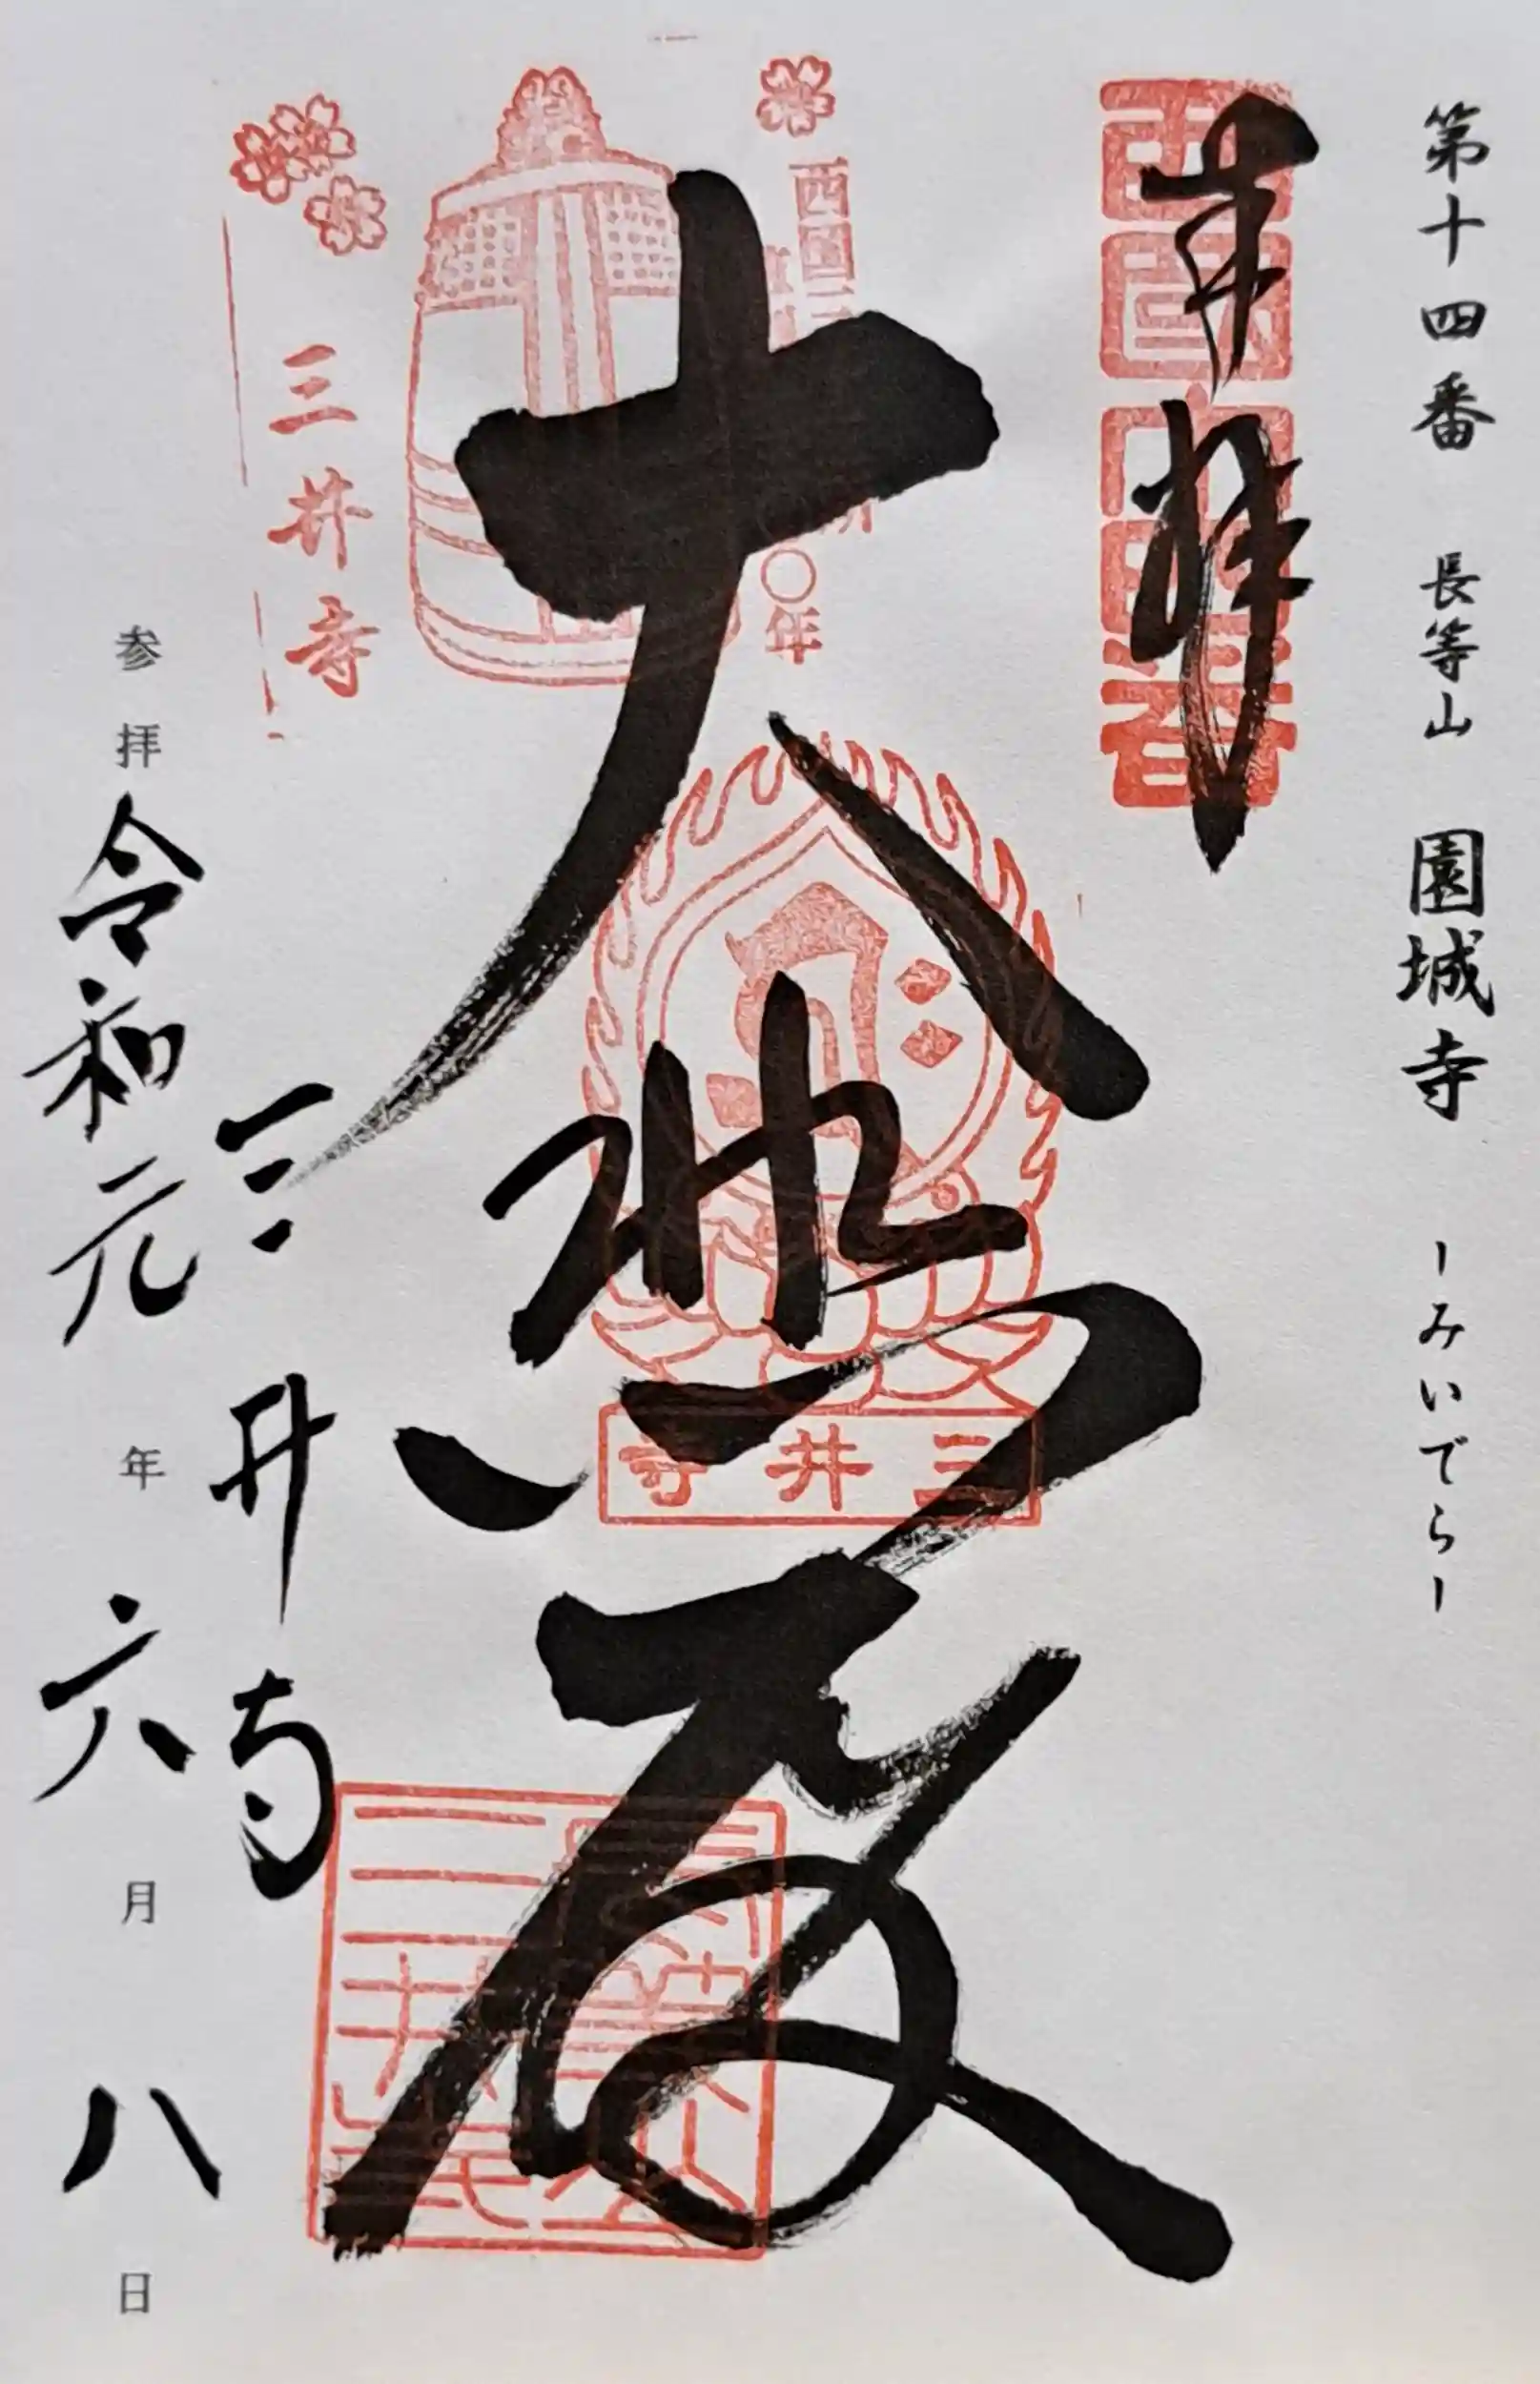 第十四番 長等山 園城寺 -みいでら-
奉拝
西国十四番
大悲殿
三井寺
三井寺
三井寺
参拝 令和元年 六月 八日